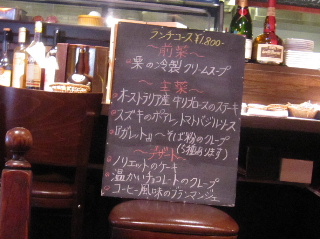 ランチコース¥1,800-
〜前菜〜
栗の冷製クリームスープ
〜主菜〜
オーストラリア産 牛リブロースのステーキ
スズキのポアレ トマトバジルソース
ガレット 〜そば粉のクレープ
(5種あります)
〜デザート〜
ノリエットのケーキ
温かいチョコレートのクレープ
コーヒー風味のブランマンジェ